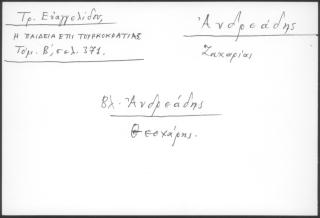 Τρ. Εὐαγγελίδου,
Η ΠΑΙΔΕΙΑ ΕΠΙ ΤΟΥΡΚΟΚΡΑΤΙΑΣ
Τόμ. Β', σελ. 371.
Ἀνδρεάδης
Ζαχαρίας
Βλ. Ἀνδρεάδης
Θεοχάρης.